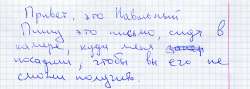 Привет, это Навальный
Пишу это письмо, сидя в
камере, куда меня
посадили, чтобы вы его не
смогли получить